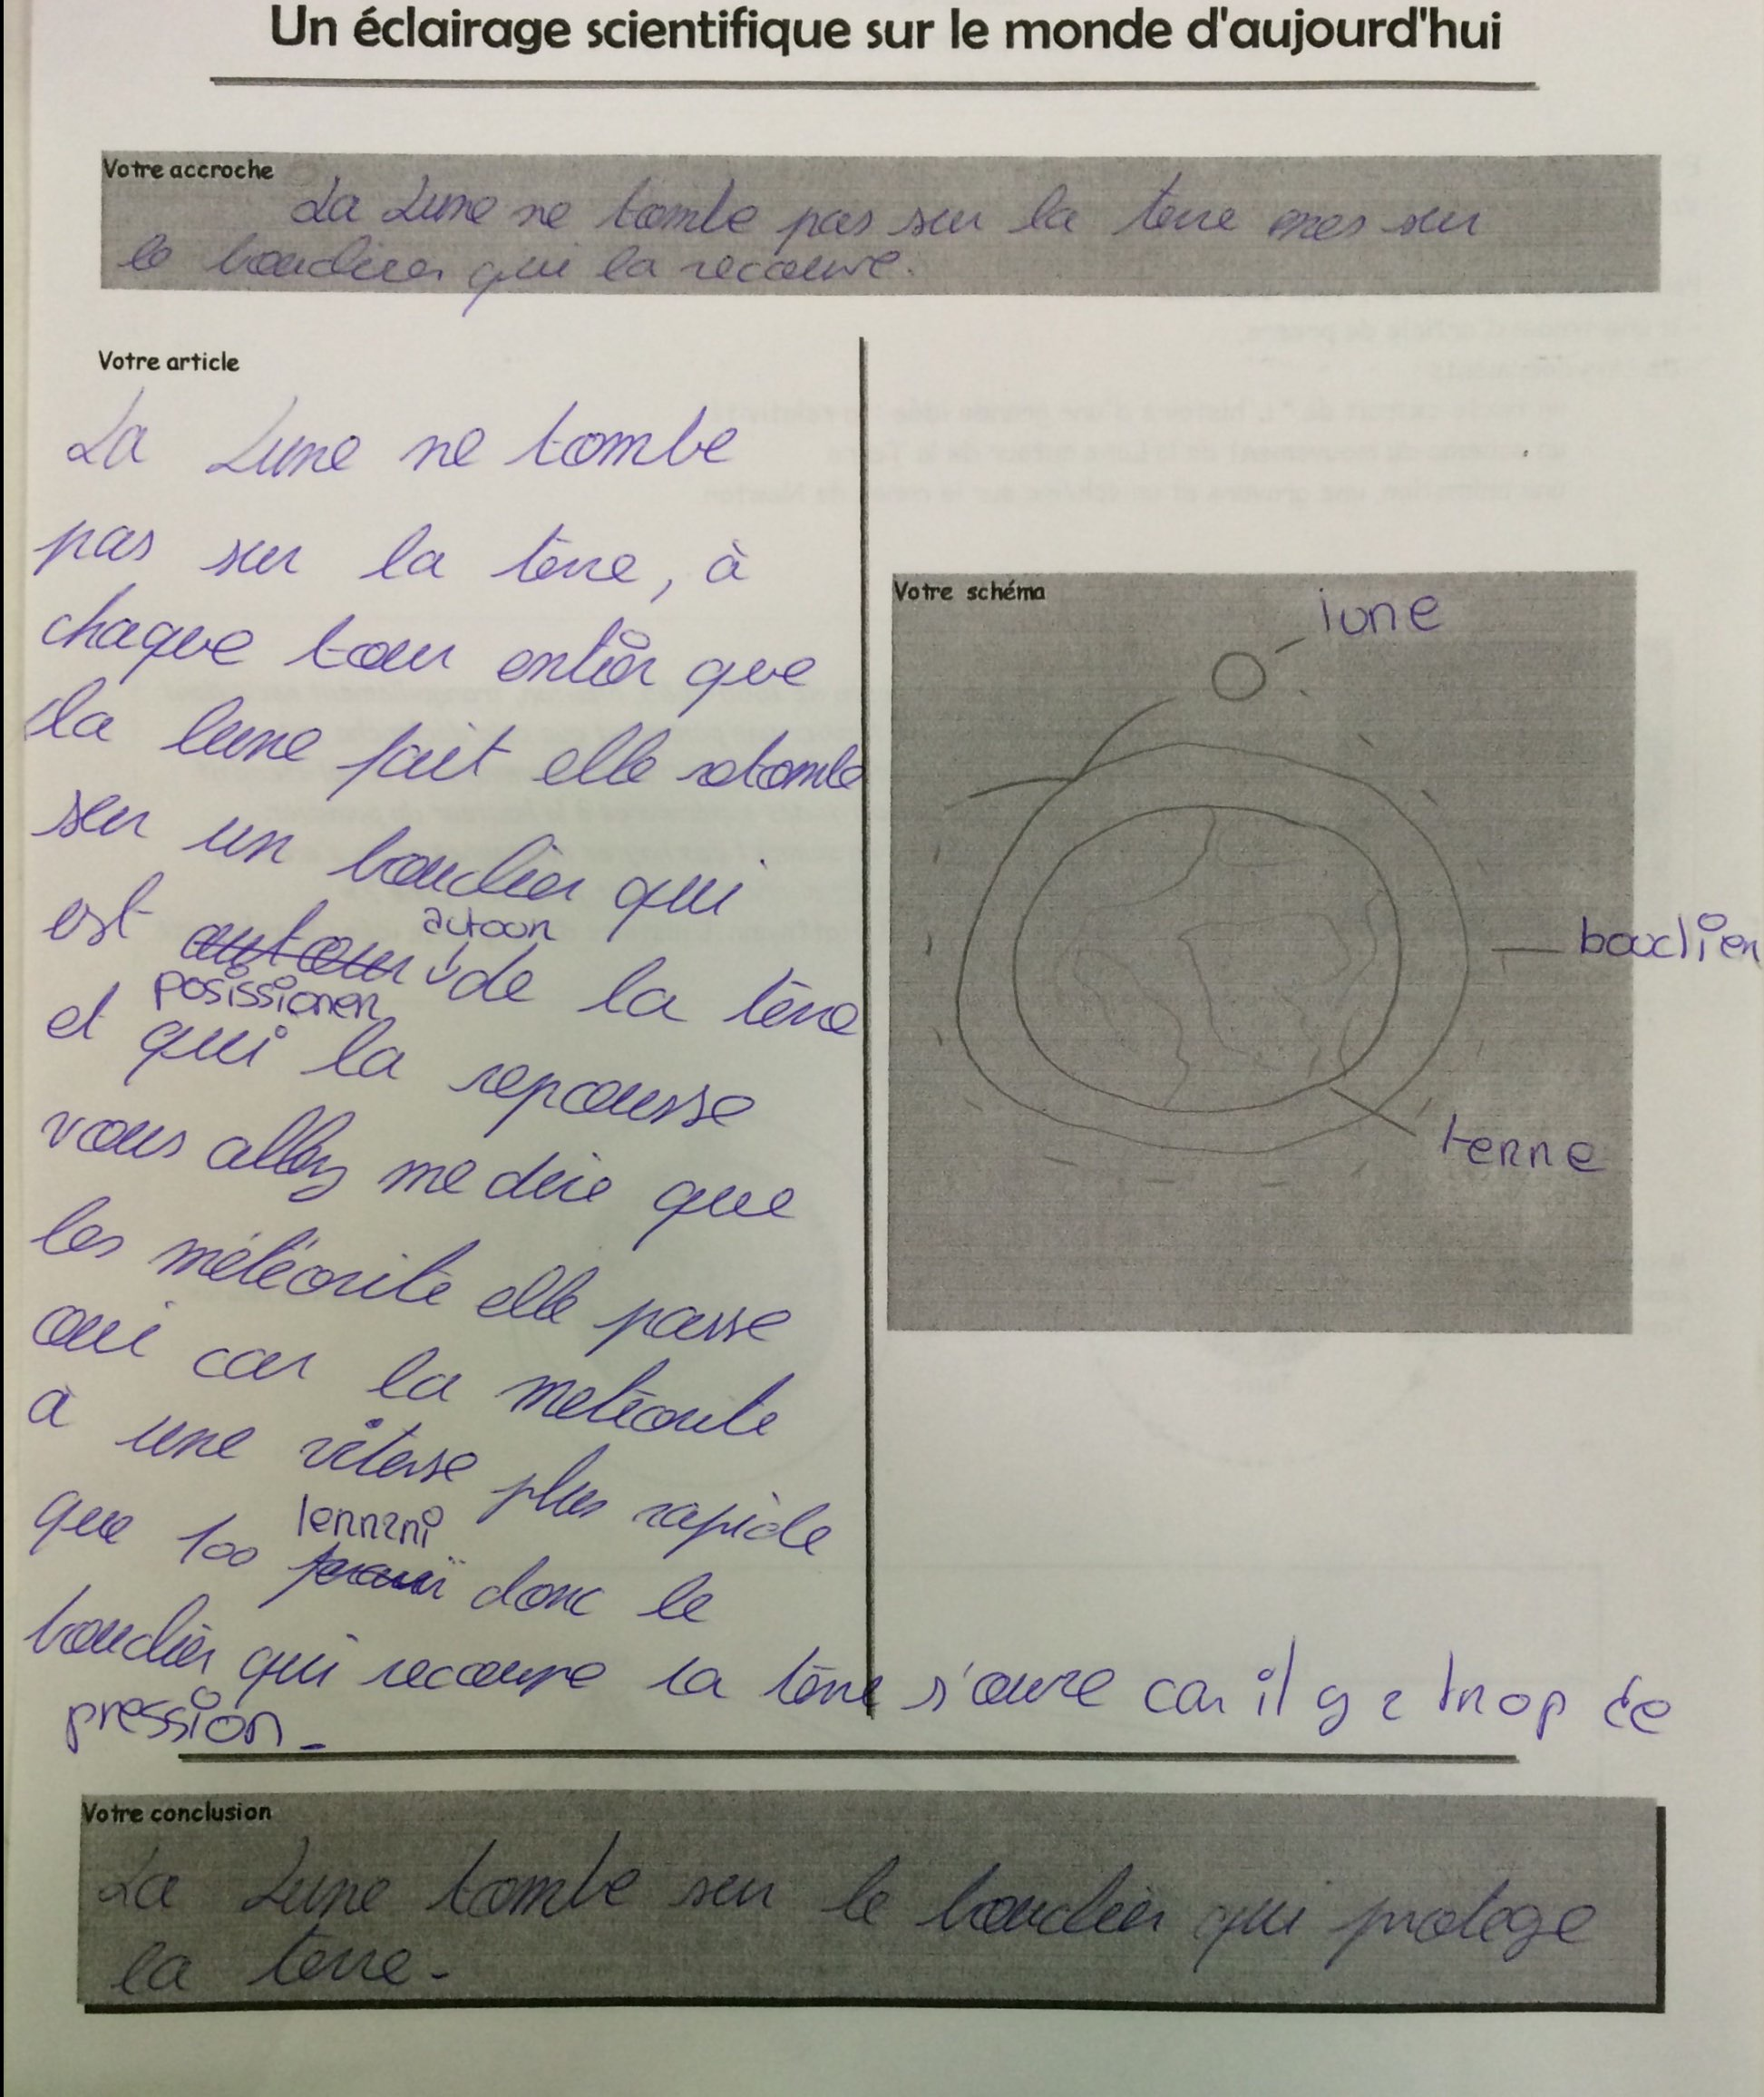 Un éclairage scientifique sur le monde d'aujourd'hui
Votre accroche
La Lune ne tombe pas sur la terre mes sur
le bouclier qui la recouvre.
Votre article
La Lune ne tombe
pas sur la terre, à
chaque tour entier que
la lune fait elle retombe
sur un bouclier qui
est autour de la terre
posissionen
et qui la repousse
vous allez me dire que
les météorite elle passe
oui car la météorite
a une vitesse plus rapide
que 100 donc le
bouclier qui recouvre la terre s'ouvre car il y a trop de
pression.
Votre schéma
lune
bouclier
terre
Votre conclusion
La Lune tombe sur le bouclier qui protege
la terre.